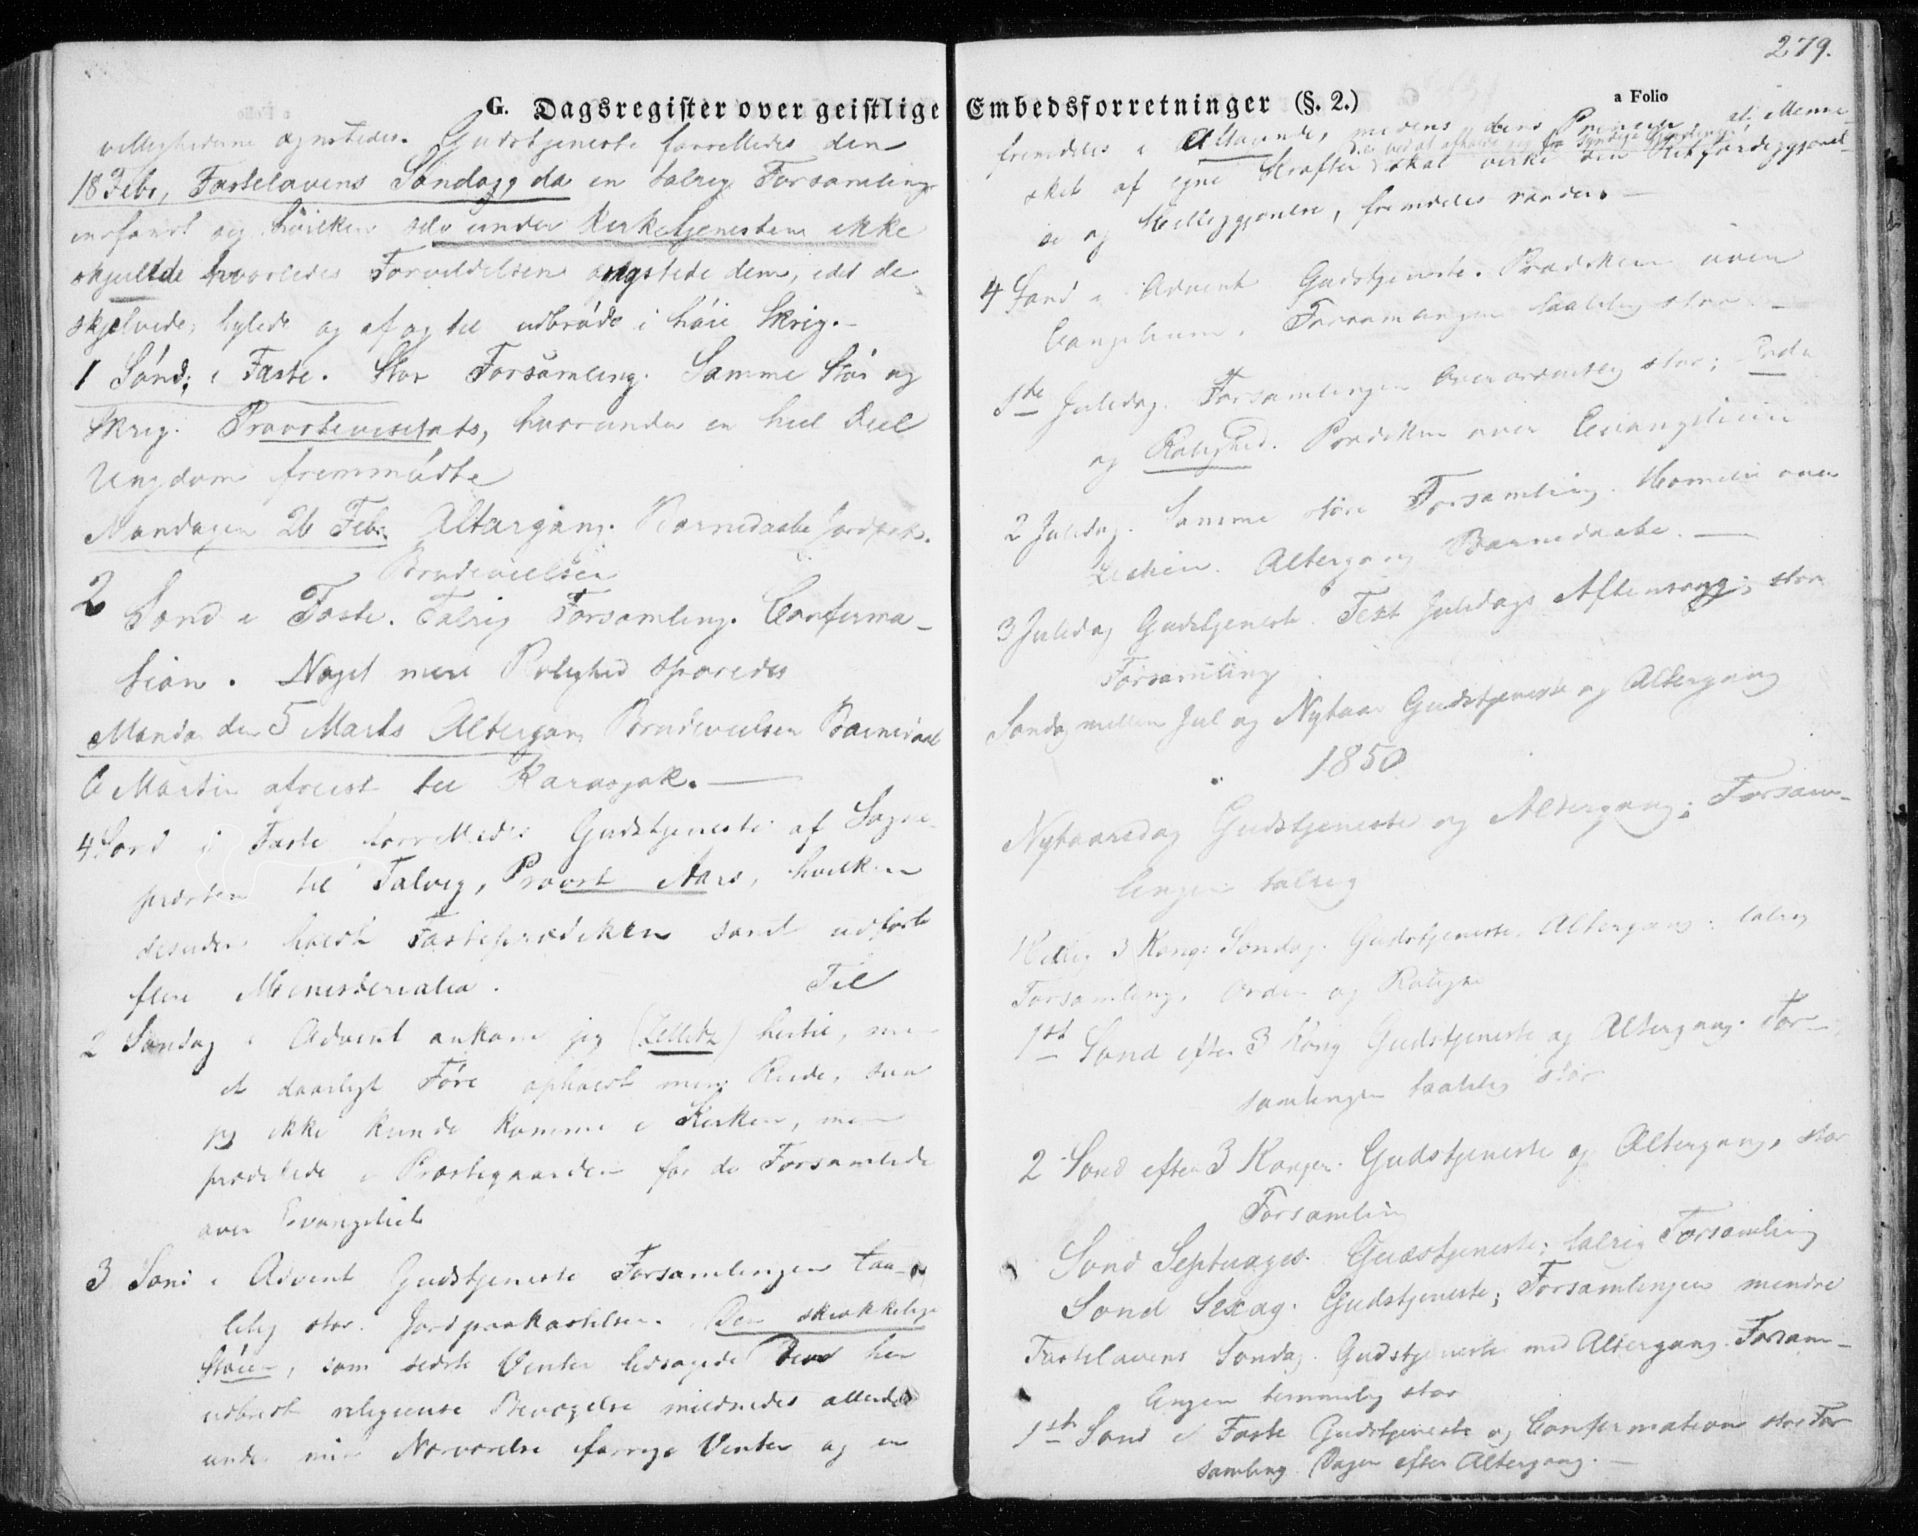 G. Dagsregister over geistlige
vellighederne Gudstjeneste forrettedes den
18 Febr, Fastelavens Søndag da en talrig Forsamling
indfandt sig hvilken selv under Kirketjenesten ikke
skjulte hvorledes Forvildelsen ængstede dem, idet de
skjelvede, hylede og af og til udbrøde i høie Skrig.-
1 Sønd: i Faste. Stor Forsamling. Samme Støi og
Skrig. Provstevisitats, hvorunder en heel Deel
Ungdom fremmødte
Mandagen 26 Febr. Altergang. Barnedaabe Jordpaak.
Brudevielser
2 Sønd i Faste. Talrig Forsamling. Confirma-
tion. Noget mere Rolighed sporedes
Manda den 5 Marts Altergang Brudevielser Barnedaab
6 Martii afreist til Karasjok. —
4 Sønd i Faste forrettedes Gudstjeneste af Sogne-
præsten til Talvig, Provst Aars, hvilken
desuden holdt Fasteprædiken samt udførte
flere Ministerialia. Til
2 Søndag i Advent ankom jeg (Zetlitz) hertil, men
et daarligt Føre opholdt min Reise, saa
jeg ikke kunde komme i Kirken, men
prædikede i Præstegaarden for de Forsamlede
over Evangeliet
3 Sønd i Advent Gudstjeneste Forsamlingen taa-
lelig stor. Jordpaakastelser. Den skrækkelige
Støien, som sidste Vinter ledsagede den her
udbrudt religieuse Bevægelse mildnedes allerede
under min Nærværelse forrige Vinter og er
279.
Embedsforretninger (§. 2.) a Folio
fremdeles i Aftagende, medens dens Princip, at Menne-
sket af egne Kræfter skal virke sin Retfærdiggjørel-
se og Helliggjørelse, fremdeles raader. —
4 Sønd i Advent Gudstjeneste. Prædiken over
Evangelium. Forsamlingen taalelig stor —
1ste Juledag. Forsamlingen overordentlig stor; Orden
og Rolighed. Prædiken over Evangelium
2 Juledag. Samme store Forsamling. Homelie over
Lectien. Altergang Barnedaabe. —
3 Juledag Gudstjeneste. Text Juledags Aftensang; stor
Forsamling
Søndag mellem Jul og Nytaar Gudstjeneste og Altergang
1850
Nytaarsdag Gudstjeneste og Altergang; Forsam-
lingen talrig
Hellig 3 Kong: Søndag. Gudstjeneste. Altergang: talrig
Forsamling, Orden og Rolighed
1st Sønd efter 3 Kong Gudstjeneste og Altergang. For-
samlingen taalelig stor
2 Sønd efter 3 Konger. Gudstjeneste og Altergang, stor
Forsamling
Sønd Septuages. Gudstjeneste; talrig Forsamling
Sønd Sexag. Gudstjeneste; Forsamlingen mindre
Fastelavens Søndag. Gudstjeneste med Altergang. Forsam-
lingen temmelig stor
1st Sønd i Faste Gudstjeneste og Confirmation stor For
samling. Dagen efter Altergang. —